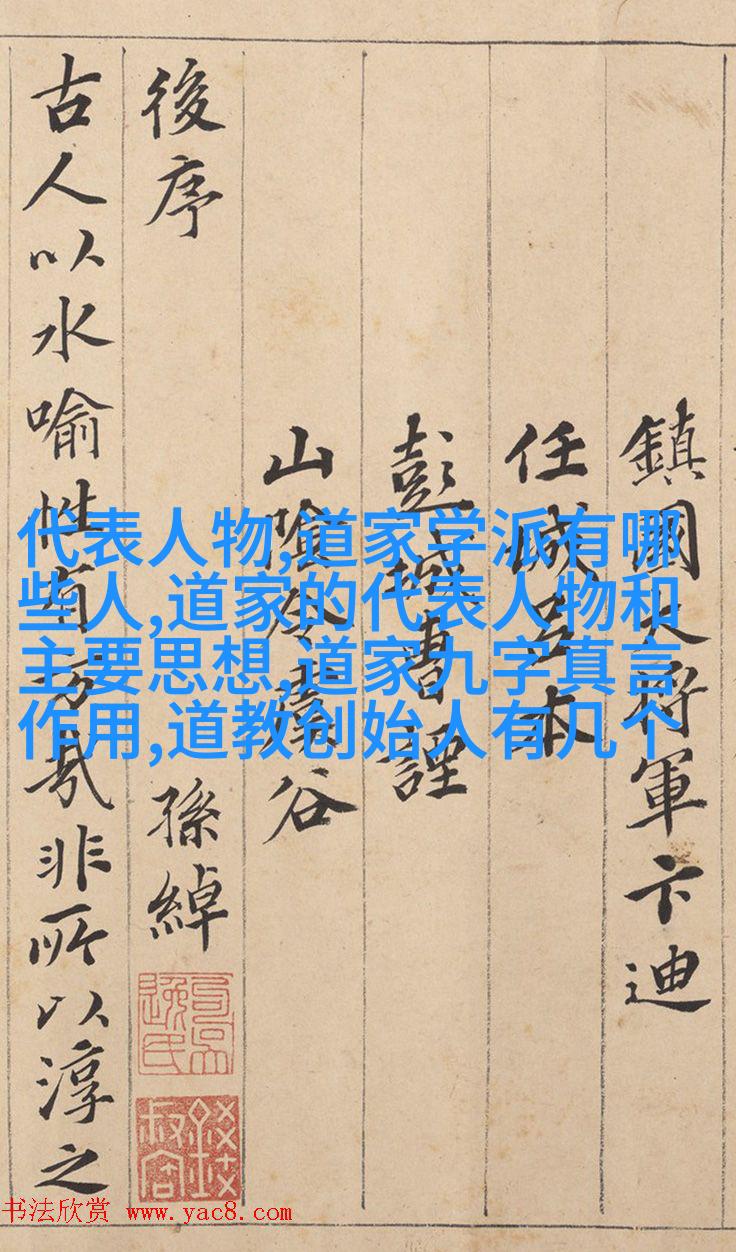 鎮國大将軍卞迪
任城呂本
彭城曹諲
山陰令虞谷
後序 孫綽
古人以水喻性有旨哉非所以淳之
代表人物,道家学派有哪
些人,道家的代表人物和
主要思想,道家九字真言
作用,道教创始人有几个
书法欣赏 www.yac8.com